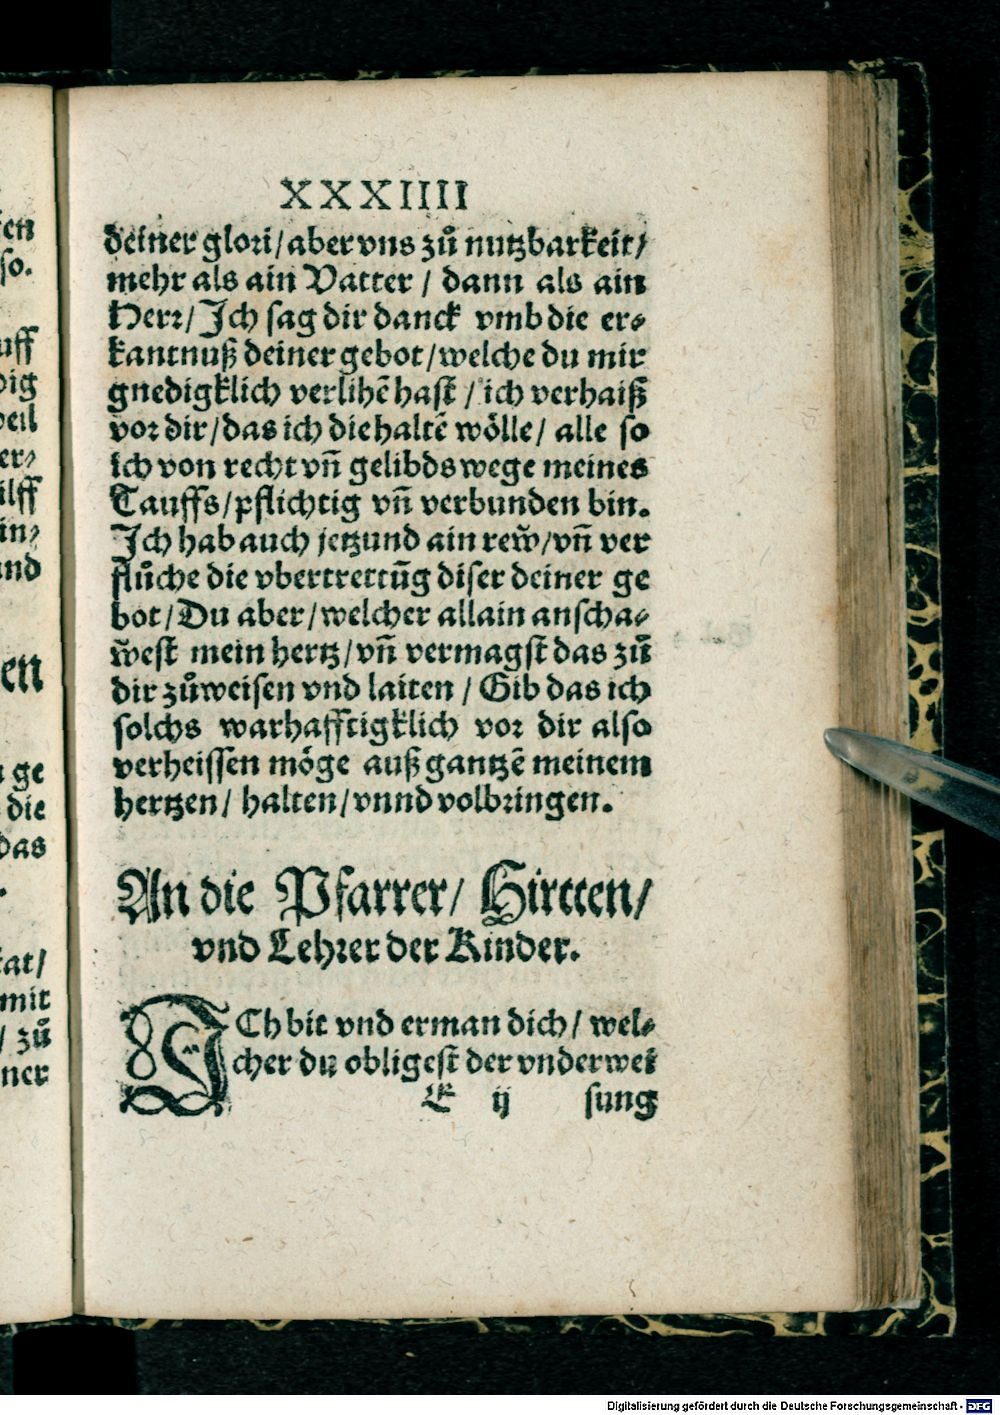 XXXIIII
deiner glori/ aber vns zů nutzbarkeit/
mehr als ain Vatter / dann als ain
Herr/ Ich sag dir danck vmb die er⸗
kantnuß deiner gebot/ welche du mir
gnedigklich verlihẽ hast / ich verhaiß
vor dir/ das ich die haltẽ wölle/ alle so
ich von recht vñ gelibds wege meines
Tauffs/ pflichtig vñ verbunden bin.
Ich hab auch jetzund ain rew̃/ vñ ver
flůche die vbertrettũg diser deiner ge
bot/ Du aber/ welcher allain anscha⸗
w̃est mein hertz/ vñ vermagst das zů
dir zůweisen vnd laiten / Gib das ich
solchs warhafftigklich vor dir also
verheissen möge auß gantzẽ meinem
hertzen/ halten/ vnnd volbringen.
An die Pfarrer/ Hirtten/
vnd Lehrer der Kinder.
ICh bit vnd erman dich/ wel⸗
cher du obligest der vnderwei
E ij sung
en
so.
uff
dig
weil
er⸗
ilff
in⸗
und
en
ge
die
das
tat/
mit
/ zů
ner
Digitalisierung gefördert durch die Deutsche Forschungsgemeinschaft - DFG